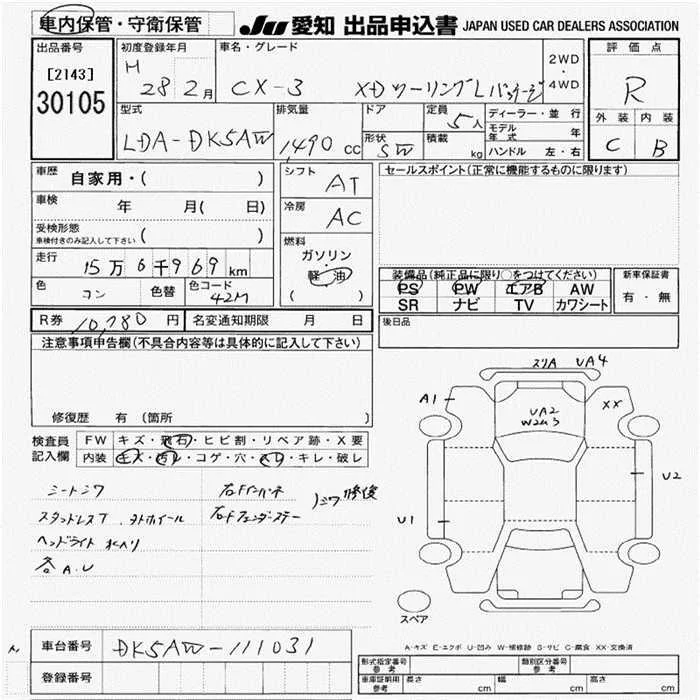 車内保管・守衛保管
JU 愛知 出品申込書 JAPAN USED CAR DEALERS ASSOCIATION
出品番号
[2143]
30105
初度登録年月
H 28 2月
車名・グレード
CX-3 XDツーリングLパッケージ
2WD
・
4WD
評価点
R
外装 内装
C B
型式
LDA-DK5AW
排気量
1,490 cc
ドア
形状
SW
定員
5人
積載
kg
ディーラー・並行
モデル年式 年
ハンドル 左・右
車歴
自家用・( )
車検
年 月( 日)
受検形態
車検付きのみ記入して下さい ( )
走行
15万6千969km
色
コン
色替
色コード
42M
シフト
AT
冷房
AC
燃料
ガソリン
・
軽油
( )
セールスポイント(正常に機能するものに限ります)
装備品(純正品に限り○をつけてください)
PS PW エアB AW
SR ナビ TV カワシート
新車保証書
有・無
R券 10,780 円
名変通知期限 月 日
後日品
注意事項申告欄(不具合内容等は具体的に記入して下さい)
修復歴 有 (箇所 )
検査員
記入欄
FW キズ・飛石・ヒビ割・リペア跡・X要
内装 キズ・汚レ・コゲ・穴・スレ・キレ・破レ
シートシワ
スタッドレスT、ヨトホイール
ヘッドライト 水入り
各A.U
右Fインパネ
右Fフェンダーステー
シワ修復
スリA UA4
A1
XX
UA2
W2U3
U2
U1
スペア
A-キズ E-エクボ U-凹み W-補修跡 S-サビ C-腐食 XX-交換済
車台番号 DK5AW-111031
登録番号
形式指定番号
参考
類別区分番号
参考
車庫証明用
参考
長さ cm
幅 cm
高さ cm